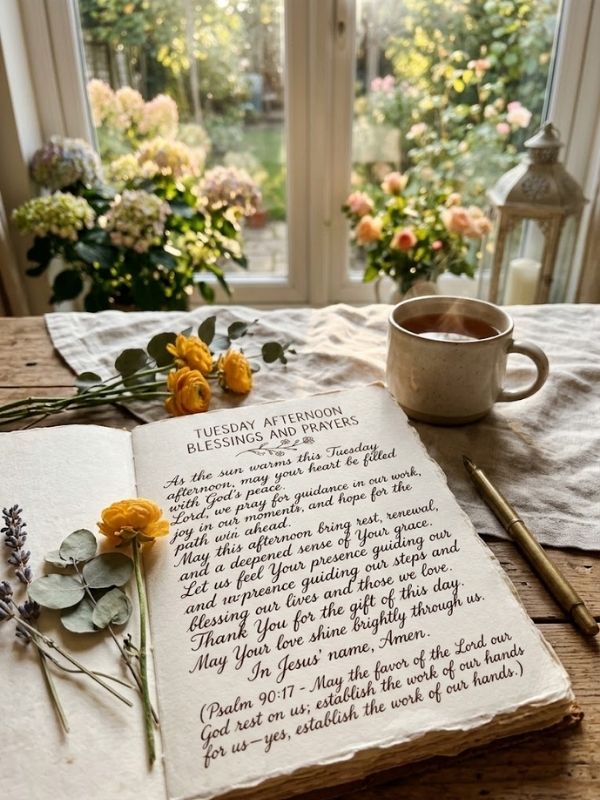 TUESDAY AFTERNOON
BLESSINGS AND PRAYERS
As the sun warms this Tuesday
afternoon, may your heart be filled
with God's peace.
Lord, we pray for guidance in our work,
joy in our moments, and hope for the
path ahead.
May this afternoon bring rest, renewal,
and a deepened sense of Your grace.
Let us feel Your presence guiding our
and guiding our steps and
blessing our lives and those we love.
Thank You for the gift of this day.
May Your love shine brightly through us.
In Jesus' name, Amen.
(Psalm 90:17 - May the favor of the Lord our
God rest on us; establish the work of our hands
for us—yes, establish the work of our hands.)